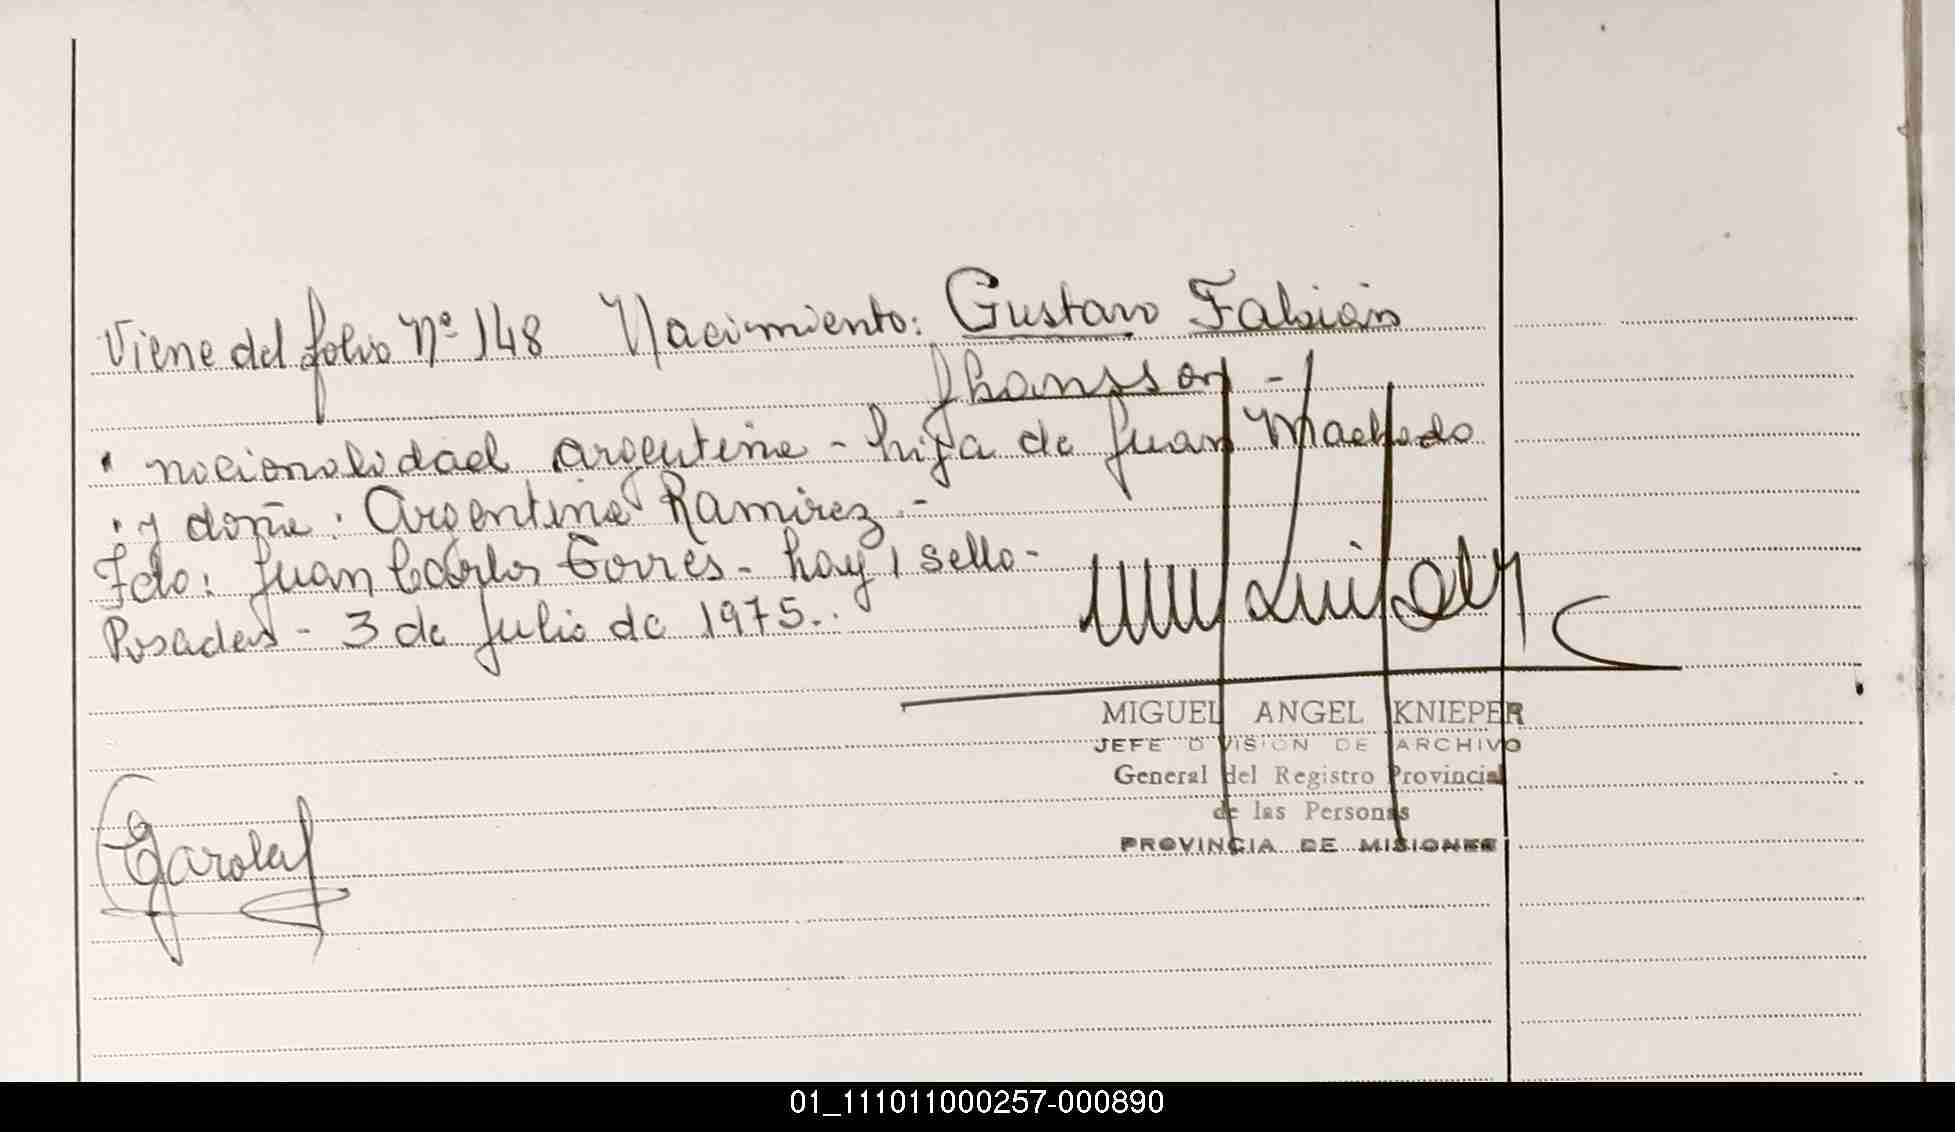 Viene del folio Nº 148 Nacimiento: Gustavo Fabián
Jhansson -
nacionalidad argentina - hija de Juan Machado
y doña: Argentina Ramirez. -
Fdo: Juan Carlos Torres - hay 1 sello -
Posadas - 3 de Julio de 1975.
MIGUEL ANGEL KNIEPER
JEFE DIVISION DE ARCHIVO
General del Registro Provincial
de las Personas
PROVINCIA DE MISIONES
01_111011000257-000890